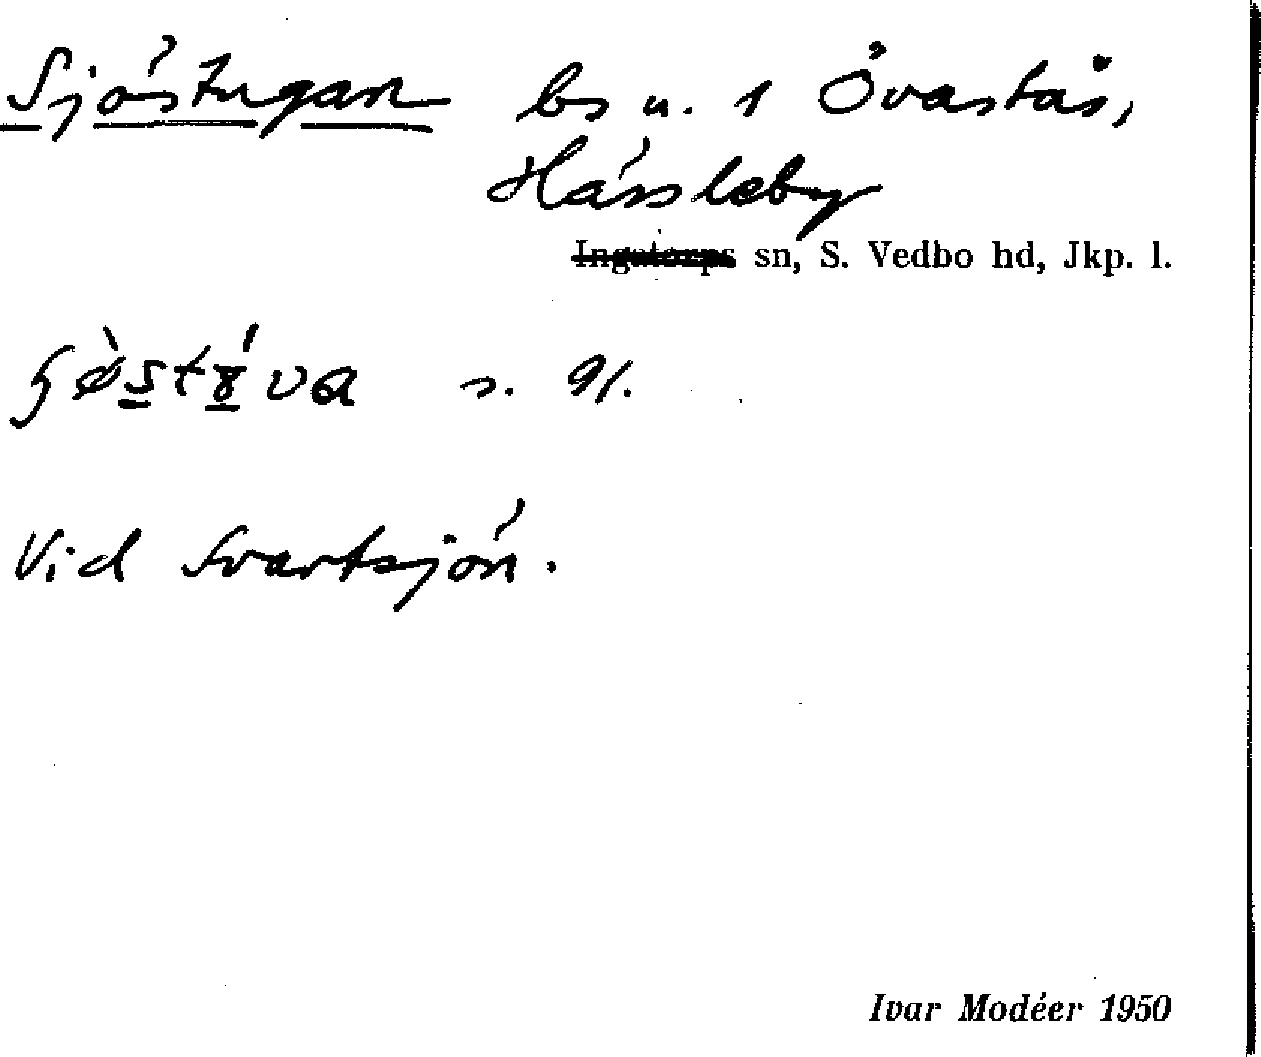 Sjöstugan bs u. 1 Övastås,
Hässleby
Ingatorps sn, S. Vedbo hd, Jkp. l.
s. 91.
Vid Svartsjön.
Ivar Modéer 1950